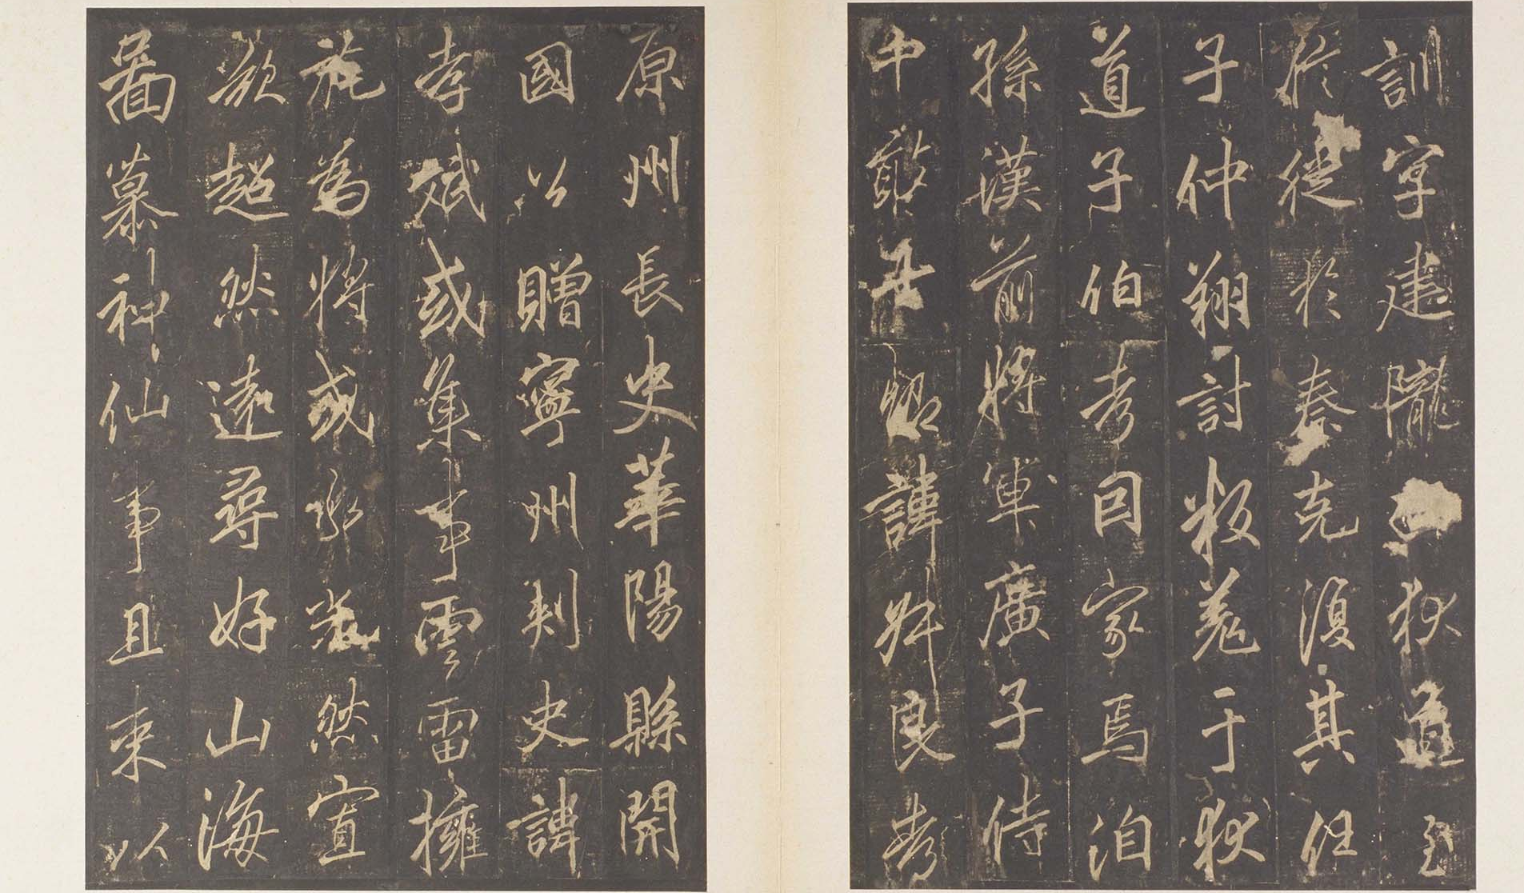 訓字建隴狄道至
徙於秦克復其任
子仲翔討叛羌于狄
道子伯考因家焉洎
孫漢前將軍廣子侍
中敢昭諱叔良考
原州長史華陽縣開
國公贈寧州刺史諱
孝斌或集事雲雷擁
旄為將或承光然宣
欲超然遠尋好山海
圖慕神仙事且束以